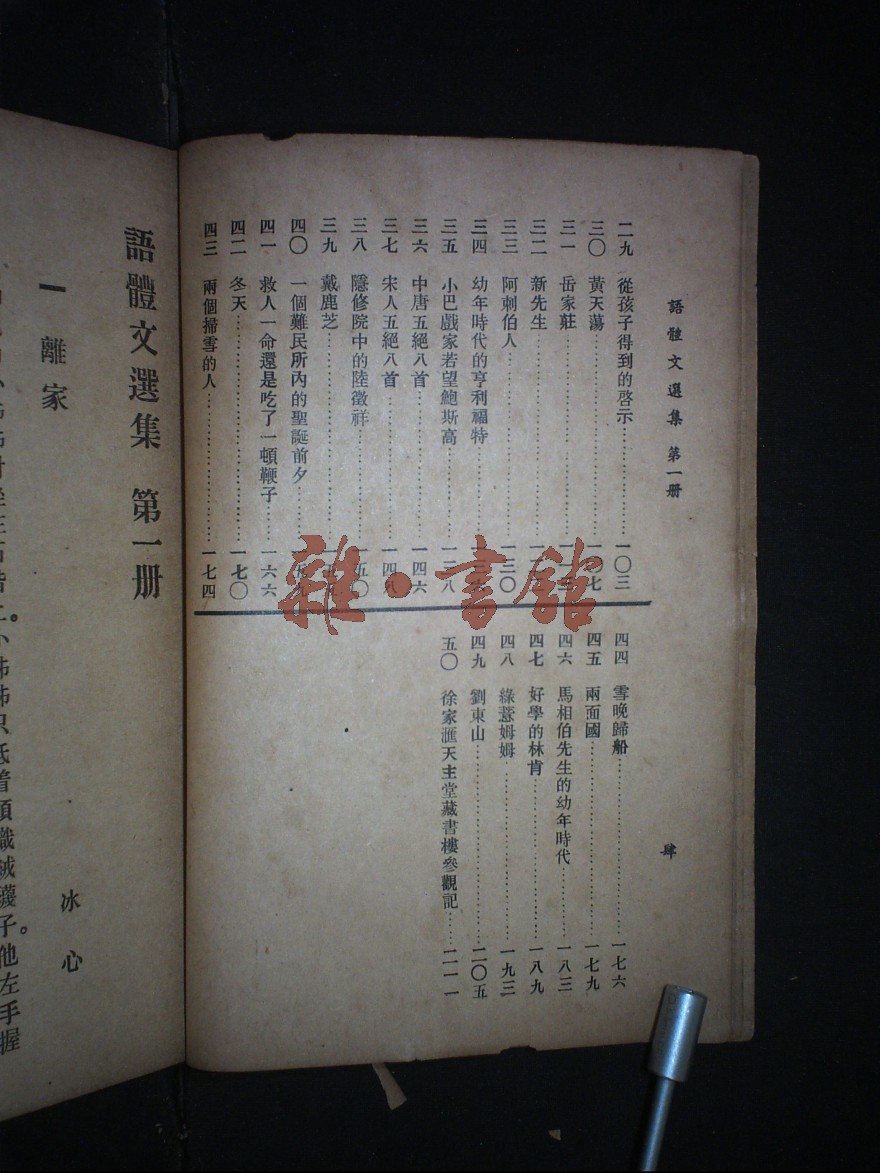 語體文選集 第一册
二九 從孩子得到的啓示……一〇三
三〇 黃天蕩……〇七
三一 岳家莊……一
三二 新先生……一
三三 阿剌伯人……一三〇
三四 幼年時代的亨利福特……一三
三五 小巴戲家若望鮑斯高……一三八
三六 中唐五絕八首……一四六
三七 宋人五絕八首……一四八
三八 隱修院中的陸徵祥……一五〇
三九 戴鹿芝……一五
四〇 一個難民所內的聖誕前夕……
四一 救人一命還是吃了一頓鞭子……一六六
四二 冬天……一七〇
四三 兩個掃雪的人……一七四
四四 雪晚歸船……一七六
四五 兩面國……一七九
四六 馬相伯先生的幼年時代……一八三
四七 好學的林肯……一八九
四八 綠薏姆姆……一九三
四九 劉東山……二〇五
五〇 徐家滙天主堂藏書樓參觀記……二一一
肆
雜·書館
語體文選集 第一册
一 離家
冰心
小弟弟只低着頭織絨襪子。他左手握